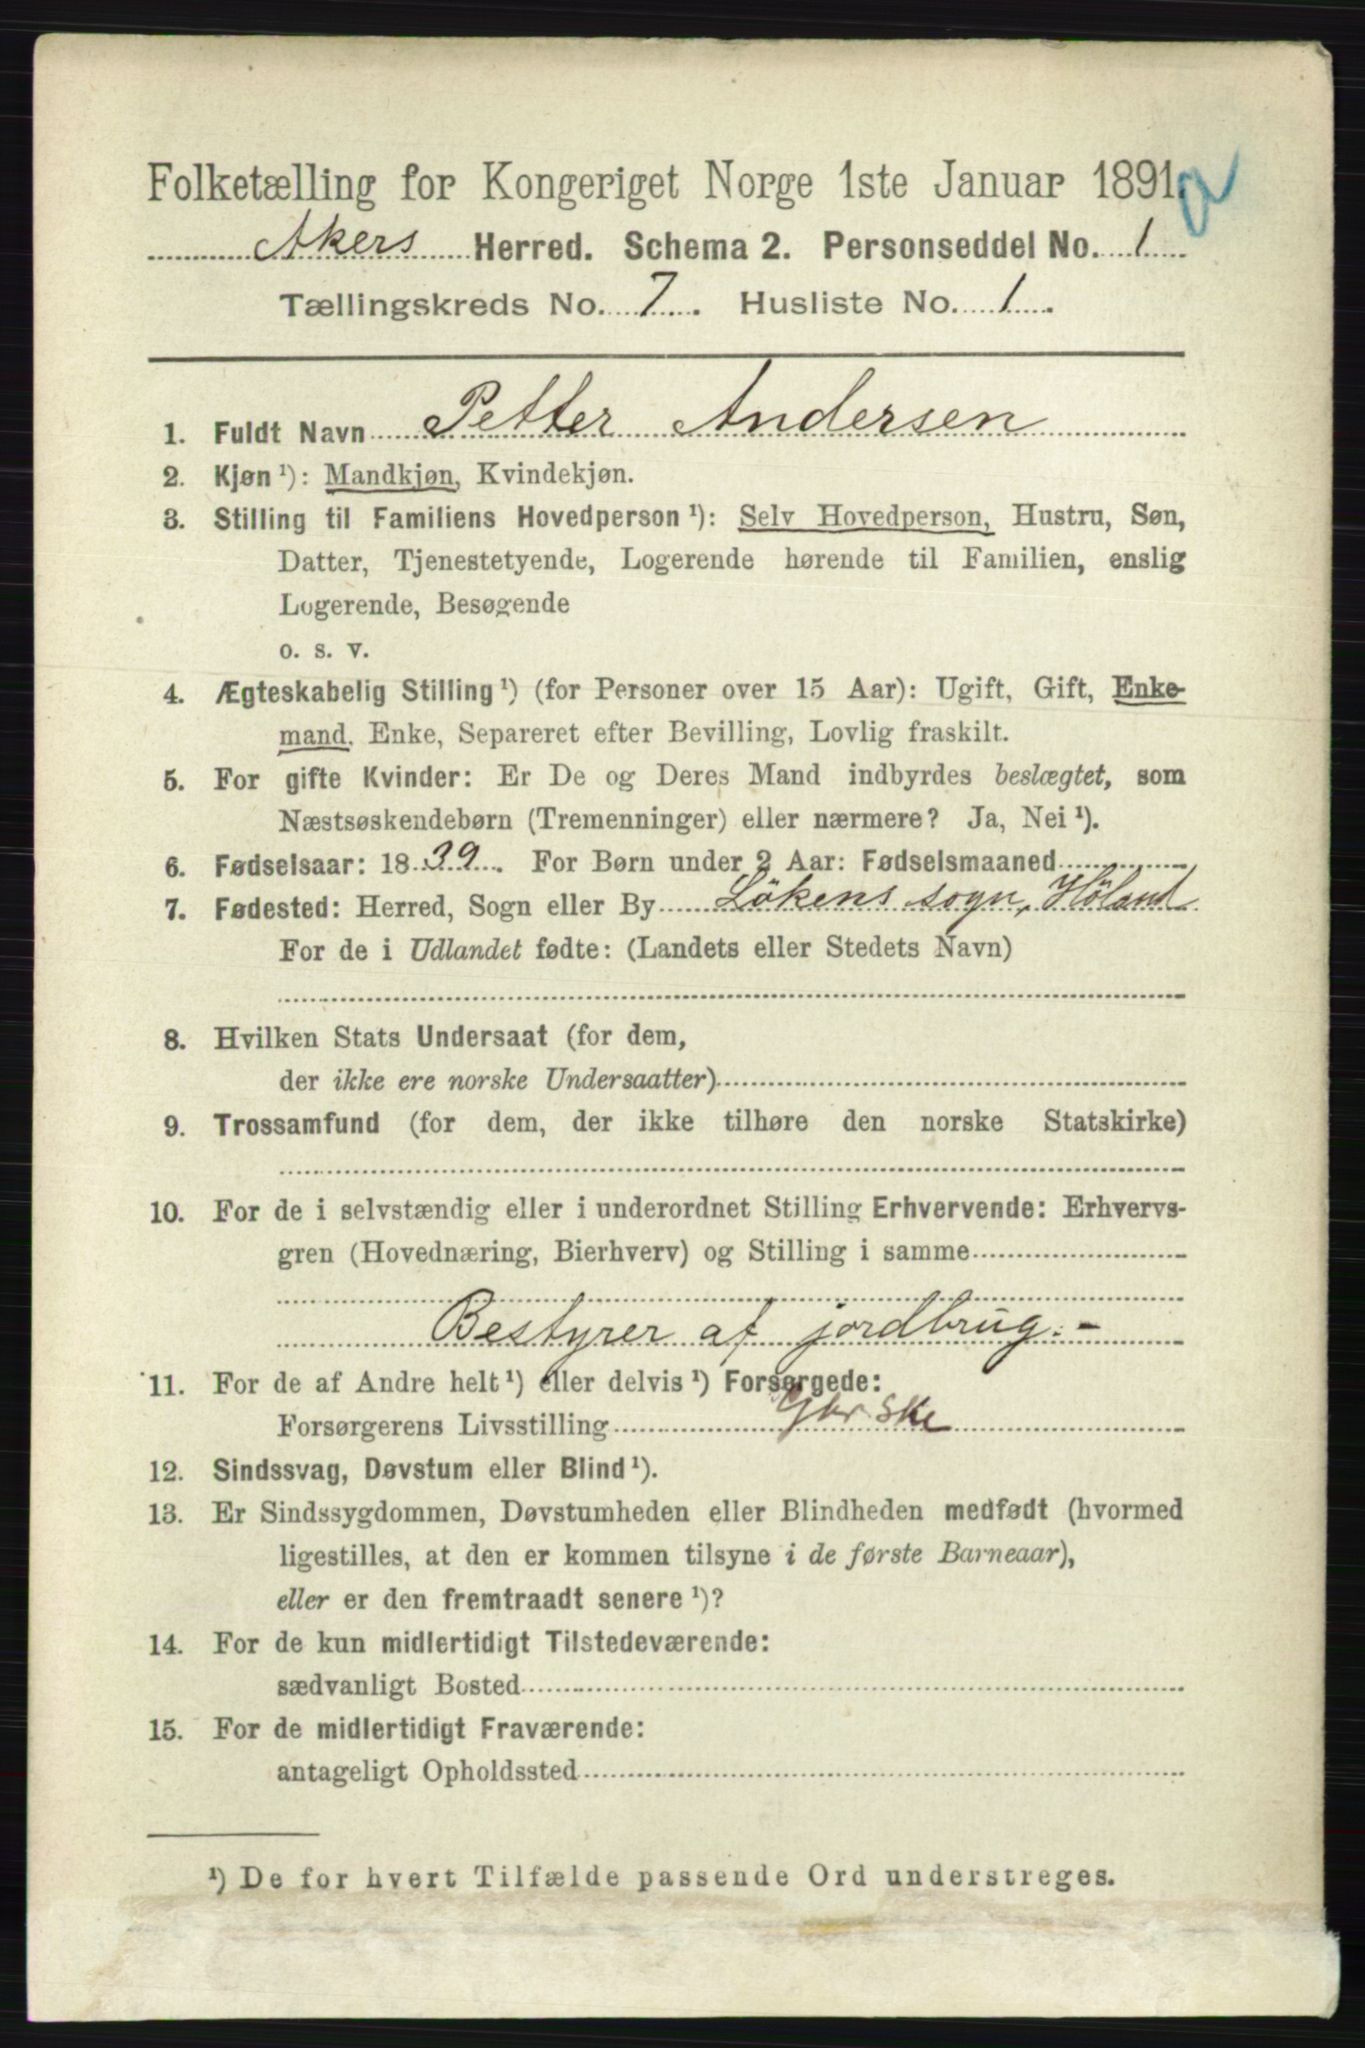 Folketælling for Kongeriget Norge 1ste Januar 1891.
Akers Herred. Schema 2. Personseddel No. 1
Tællingskreds No. 7. Husliste No. 1.
1. Fuldt Navn Petter Andersen
2. Kjøn ¹): Mandkjøn, Kvindekjøn.
3. Stilling til Familiens Hovedperson ¹): Selv Hovedperson, Hustru, Søn,
Datter, Tjenestetyende, Logerende hørende til Familien, enslig
Logerende, Besøgende
o. s. v.
4. Ægteskabelig Stilling ¹) (for Personer over 15 Aar): Ugift, Gift, Enke-
mand, Enke, Separeret efter Bevilling, Lovlig fraskilt.
5. For gifte Kvinder: Er De og Deres Mand indbyrdes beslægtet, som
Næstsøskendebørn (Tremenninger) eller nærmere? Ja, Nei ¹).
6. Fødselsaar: 1839. For Børn under 2 Aar: Fødselsmaaned
7. Fødested: Herred, Sogn eller By Lökens sogn, Höland
For de i Udlandet fødte: (Landets eller Stedets Navn)
8. Hvilken Stats Undersaat (for dem,
der ikke ere norske Undersaatter)
9. Trossamfund (for dem, der ikke tilhøre den norske Statskirke)
10. For de i selvstændig eller i underordnet Stilling Erhvervende: Erhvervs-
gren (Hovednæring, Bierhverv) og Stilling i samme
Bestyrer af jordbrug.-
11. For de af Andre helt ¹) eller delvis ¹) Forsørgede:
Forsørgerens Livsstilling
12. Sindssvag, Døvstum eller Blind ¹).
13. Er Sindssygdommen, Døvstumheden eller Blindheden medfødt (hvormed
ligestilles, at den er kommen tilsyne i de første Barneaar),
eller er den fremtraadt senere ¹)?
14. For de kun midlertidigt Tilstedeværende:
sædvanligt Bosted
15. For de midlertidigt Fraværende:
antageligt Opholdssted
¹) De for hvert Tilfælde passende Ord understreges.